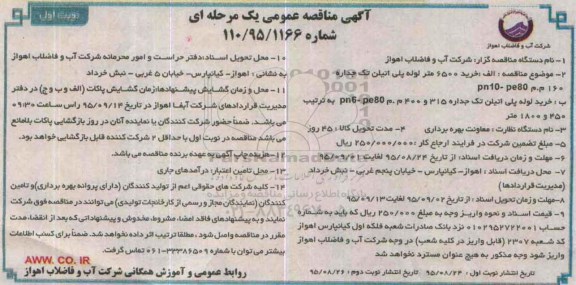 نوبت اول
آگهی مناقصه عمومی یک مرحله ای
شماره ۱۱۰/۹۵/۱۱۶۶
شرکت آب و فاضلاب اهواز
۱- نام دستگاه مناقصه گزار: شرکت آب و فاضلاب اهواز
۲- موضوع مناقصه : الف :خرید ۶۵۰۰ متر لوله پلی اتیلن تک جداره
۱۶۰ م.م pn10- pe80
ب : خرید لوله پلی اتیلن تک جداره ۳۱۵ و ۴۰۰ م.م pn6- pe80 به ترتیب
۴۵۰ و ۱۸۰۰ متر
۳- نام دستگاه نظارت : معاونت بهره برداری ۴- مدت تحویل کالا : ۴۵ روز
۵- مبلغ تضمین شرکت در فرایند ارجاع کار : ۲۵۰/۰۰۰/۰۰۰ ریال
۶- مهلت و زمان دریافت اسناد: از تاریخ ۹۵/۰۸/۲۴ لغایت
۷- محل دریافت اسناد : اهواز - کیانپارس - خیابان پنجم غربی - نبش خرداد
(مدیریت قراردادها)
۸-مهلت و زمان تحویل اسناد : از تاریخ ۹۵/۰۹/۰۲ لغایت ۹۵/۰۹/۱۳
۹- قیمت اسناد و نحوه واریز وجه به مبلغ ۲۵۰/۰۰۰ ریال که باید به شماره
حساب ۰۱۰۲۹۵۷۲۴۰۰۱ نزد بانک صادرات شعبه فلکه اول کیانپارس اهواز
کد شعبه ۲۳۰۷ (قابل واریز در کلیه شعب) در وجه شرکت آب و فاضلاب اهواز
واریز شود وجه مذکور به هیچ عنوان مسترد نخواهد شد
تاریخ انتشار نوبت اول : ۹۵/۰۸/۲۴ تاریخ انتشار نوبت دوم : ۹۵/۰۸/۲۶
۱۰- محل تحویل اسناد:دفتر حراست و امور محرمانه شرکت آب و فاضلاب اهواز
به نشانی : اهواز- کیانپارس- خیابان ۵ غربی - نبش خرداد
۱۱- محل و زمان گشایش پیشنهادها:زمان گشایش پاکات (الف و ب و ج) در دفتر
مدیریت قراردادهای شرکت آبفا اهواز در تاریخ ۹۵/۰۹/۱۴ راس ساعت ۰۹:۳۰
می باشد. ضمناً حضور شرکت کنندگان یا نماینده آنان در روز بازگشایی پاکات بلامانع
می باشد مناقصه در نوبت اول با حداقل ۲ شرکت کننده قابل بازگشایی خواهد بود.
۱۲- هزینه چاپ آگهی به عهده برنده مناقصه می باشد.
۱۳- محل تامین اعتبار: درآمدهای جاری
۱۴- کلیه شرکت های حقوقی اعم از تولید کنندگان (دارای پروانه بهره برداری)و تامین
کنندگان (نمایندگان مجاز و رسمی از کارخانجات تولیدی) می توانند در مناقصه فوق شرکت
نمایند و به پیشنهادهای فاقد امضاء، مشروط، مخدوش و پیشنهاداتی که بعد از انقضاء مدت
مقرر در مناقصه واصل شود ، مطلقا ترتیب اثر داده نخواهد شد. ضمناً برای کسب اطلاعات
بیشتر می توان با شماره ۳۳۳۸۶۵۰۹-۰۶۱ تماس گرفت.
AWW. CO. IR
روابط عمومی و آموزش همگانی شرکت آب و فاضلاب اهواز